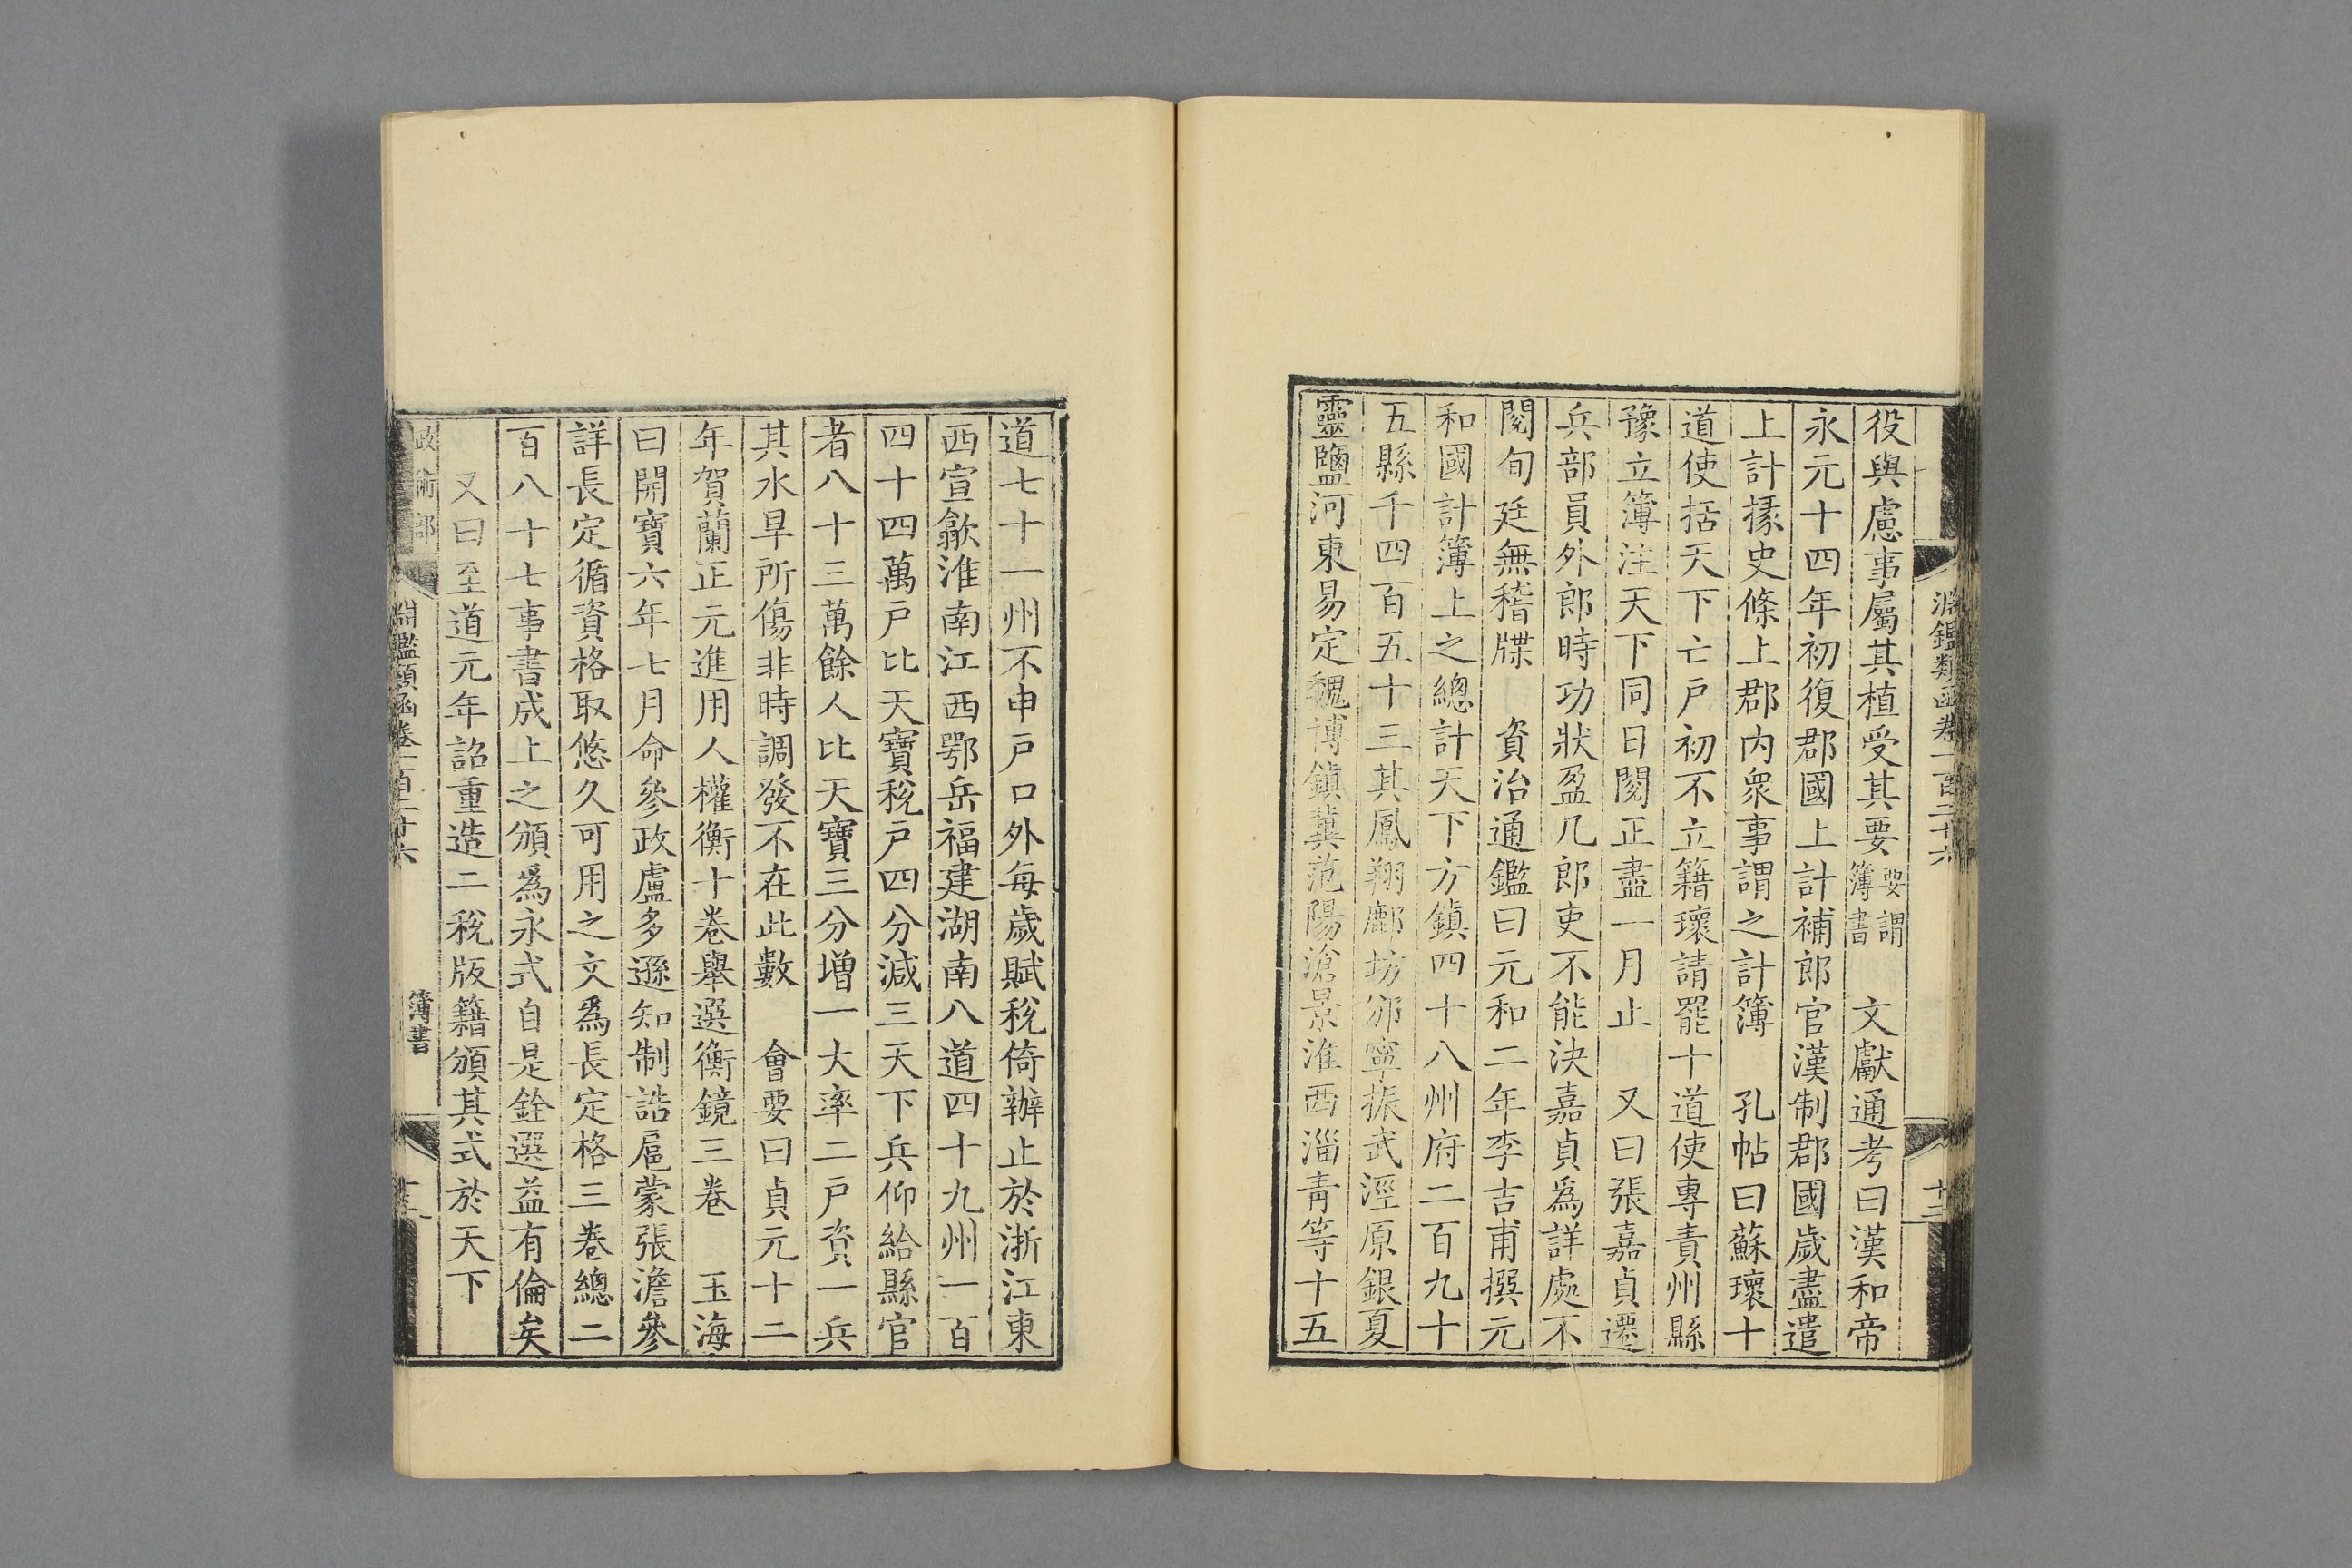 淵鑑類函卷一百二十六
十三
役與慮事屬其植受其要要謂簿書　文獻通考曰漢和帝
永元十四年初復郡國上計補郎官漢制郡國歲盡遣
上計掾史條上郡內衆事謂之計簿　孔帖曰蘇瓌十
道使括天下亡戶初不立籍瓌請罷十道使專責州縣
豫立簿注天下同日閱正盡一月止　又曰張嘉貞遷
兵部員外郎時功狀盈几郎吏不能決嘉貞爲詳處不
閱旬廷無稽牒　資治通鑑曰元和二年李吉甫撰元
和國計簿上之總計天下方鎮四十八州府二百九十
五縣千四百五十三其鳳翔鄜坊邠寧振武涇原銀夏
靈鹽河東易定魏博鎮冀范陽滄景淮西淄青等十五
道七十一州不申戶口外每歲賦稅倚辦止於浙江東
西宣歙淮南江西鄂岳福建湖南八道四十九州一百
四十四萬戶比天寶稅戶四分減三天下兵仰給縣官
者八十三萬餘人比天寶三分增一大率二戶資一兵
其水旱所傷非時調發不在此數　會要曰貞元十二
年賀蘭正元進用人權衡十卷舉選衡鏡三卷　玉海
曰開寶六年七月命參政盧多遜知制誥扈蒙張澹參
詳長定循資格取悠久可用之文爲長定格三卷總二
百八十七事書成上之頒爲永式自是銓選益有倫矣
又曰至道元年詔重造二稅版籍頒其式於天下
政術部
淵鑑類函卷一百二十六
簿書
十三